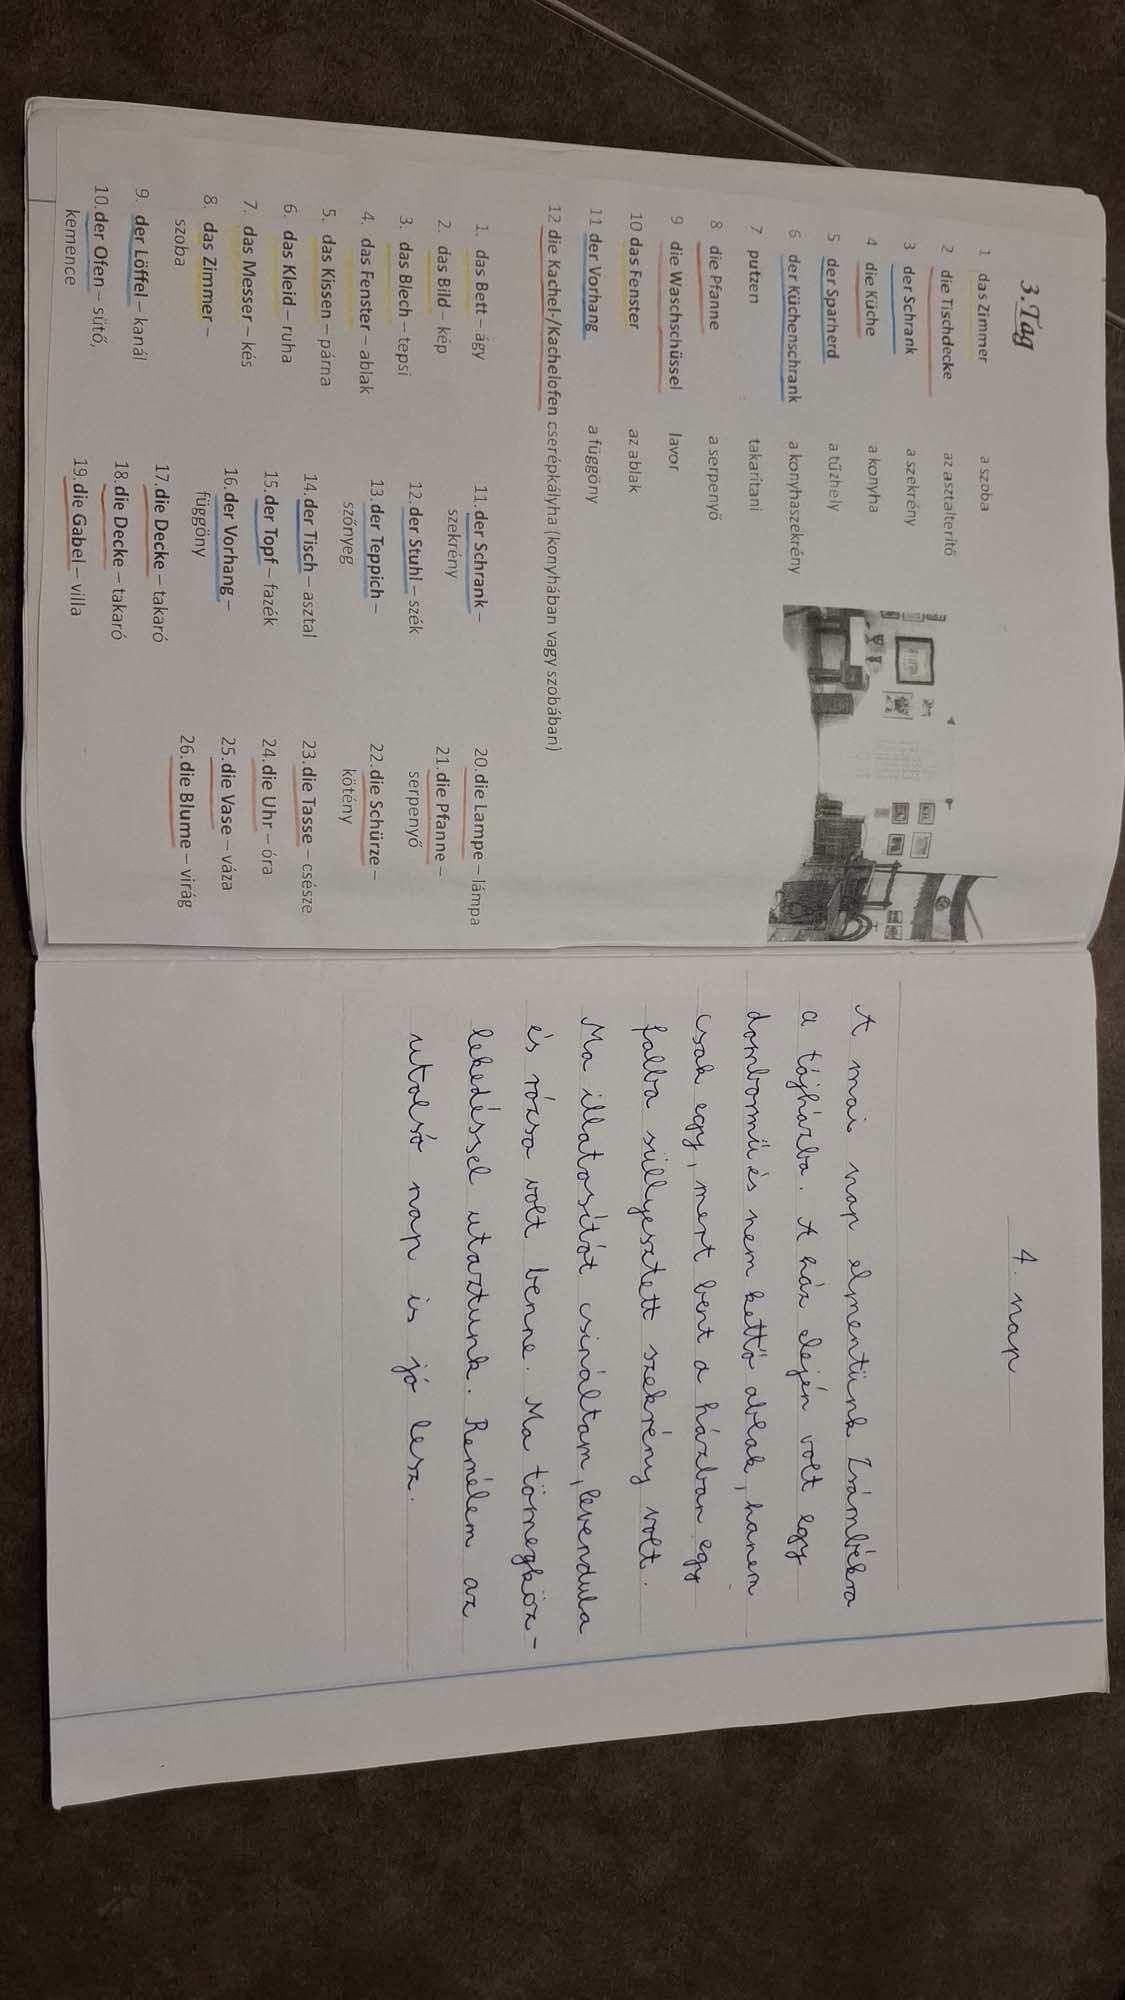 3.Tag
1 das Zimmer a szoba
2 die Tischdecke az asztalterítő
3 der Schrank a szekrény
4 die Küche a konyha
5 der Sparherd a tűzhely
6 der Küchenschrank a konyhaszekrény
7 putzen takarítani
8 die Pfanne a serpenyő
9 die Waschschüssel lavor
10 das Fenster az ablak
11 der Vorhang a függöny
12 die Kachel-/Kachelofen cserépkályha (konyhában vagy szobában)
1. das Bett – ágy
2. das Bild – kép
3. das Blech – tepsi
4. das Fenster – ablak
5. das Kissen – párna
6. das Kleid – ruha
7. das Messer – kés
8. das Zimmer –
szoba
9. der Löffel – kanál
10. der Ofen – sütő,
kemence
11. der Schrank –
szekrény
12. der Stuhl – szék
13. der Teppich –
szőnyeg
14. der Tisch – asztal
15. der Topf – fazék
16. der Vorhang –
függöny
17. die Decke – takaró
18. die Decke – takaró
19. die Gabel – villa
20. die Lampe – lámpa
21. die Pfanne –
serpenyő
22. die Schürze –
kötény
23. die Tasse – csésze
24. die Uhr – óra
25. die Vase – váza
26. die Blume – virág
4. nap
A mai nap elmentünk Zsámbékra
a tájházba. A ház elején volt egy
dombormű és nem kettő ablak, hanem
csak egy, mert bent a házban egy
falba süllyesztett szekrény volt.
Ma illatosítót csináltam, levendula
és rózsa volt benne. Ma tömegköz-
lekedéssel utaztunk. Remélem az
utolsó nap is jó lesz.